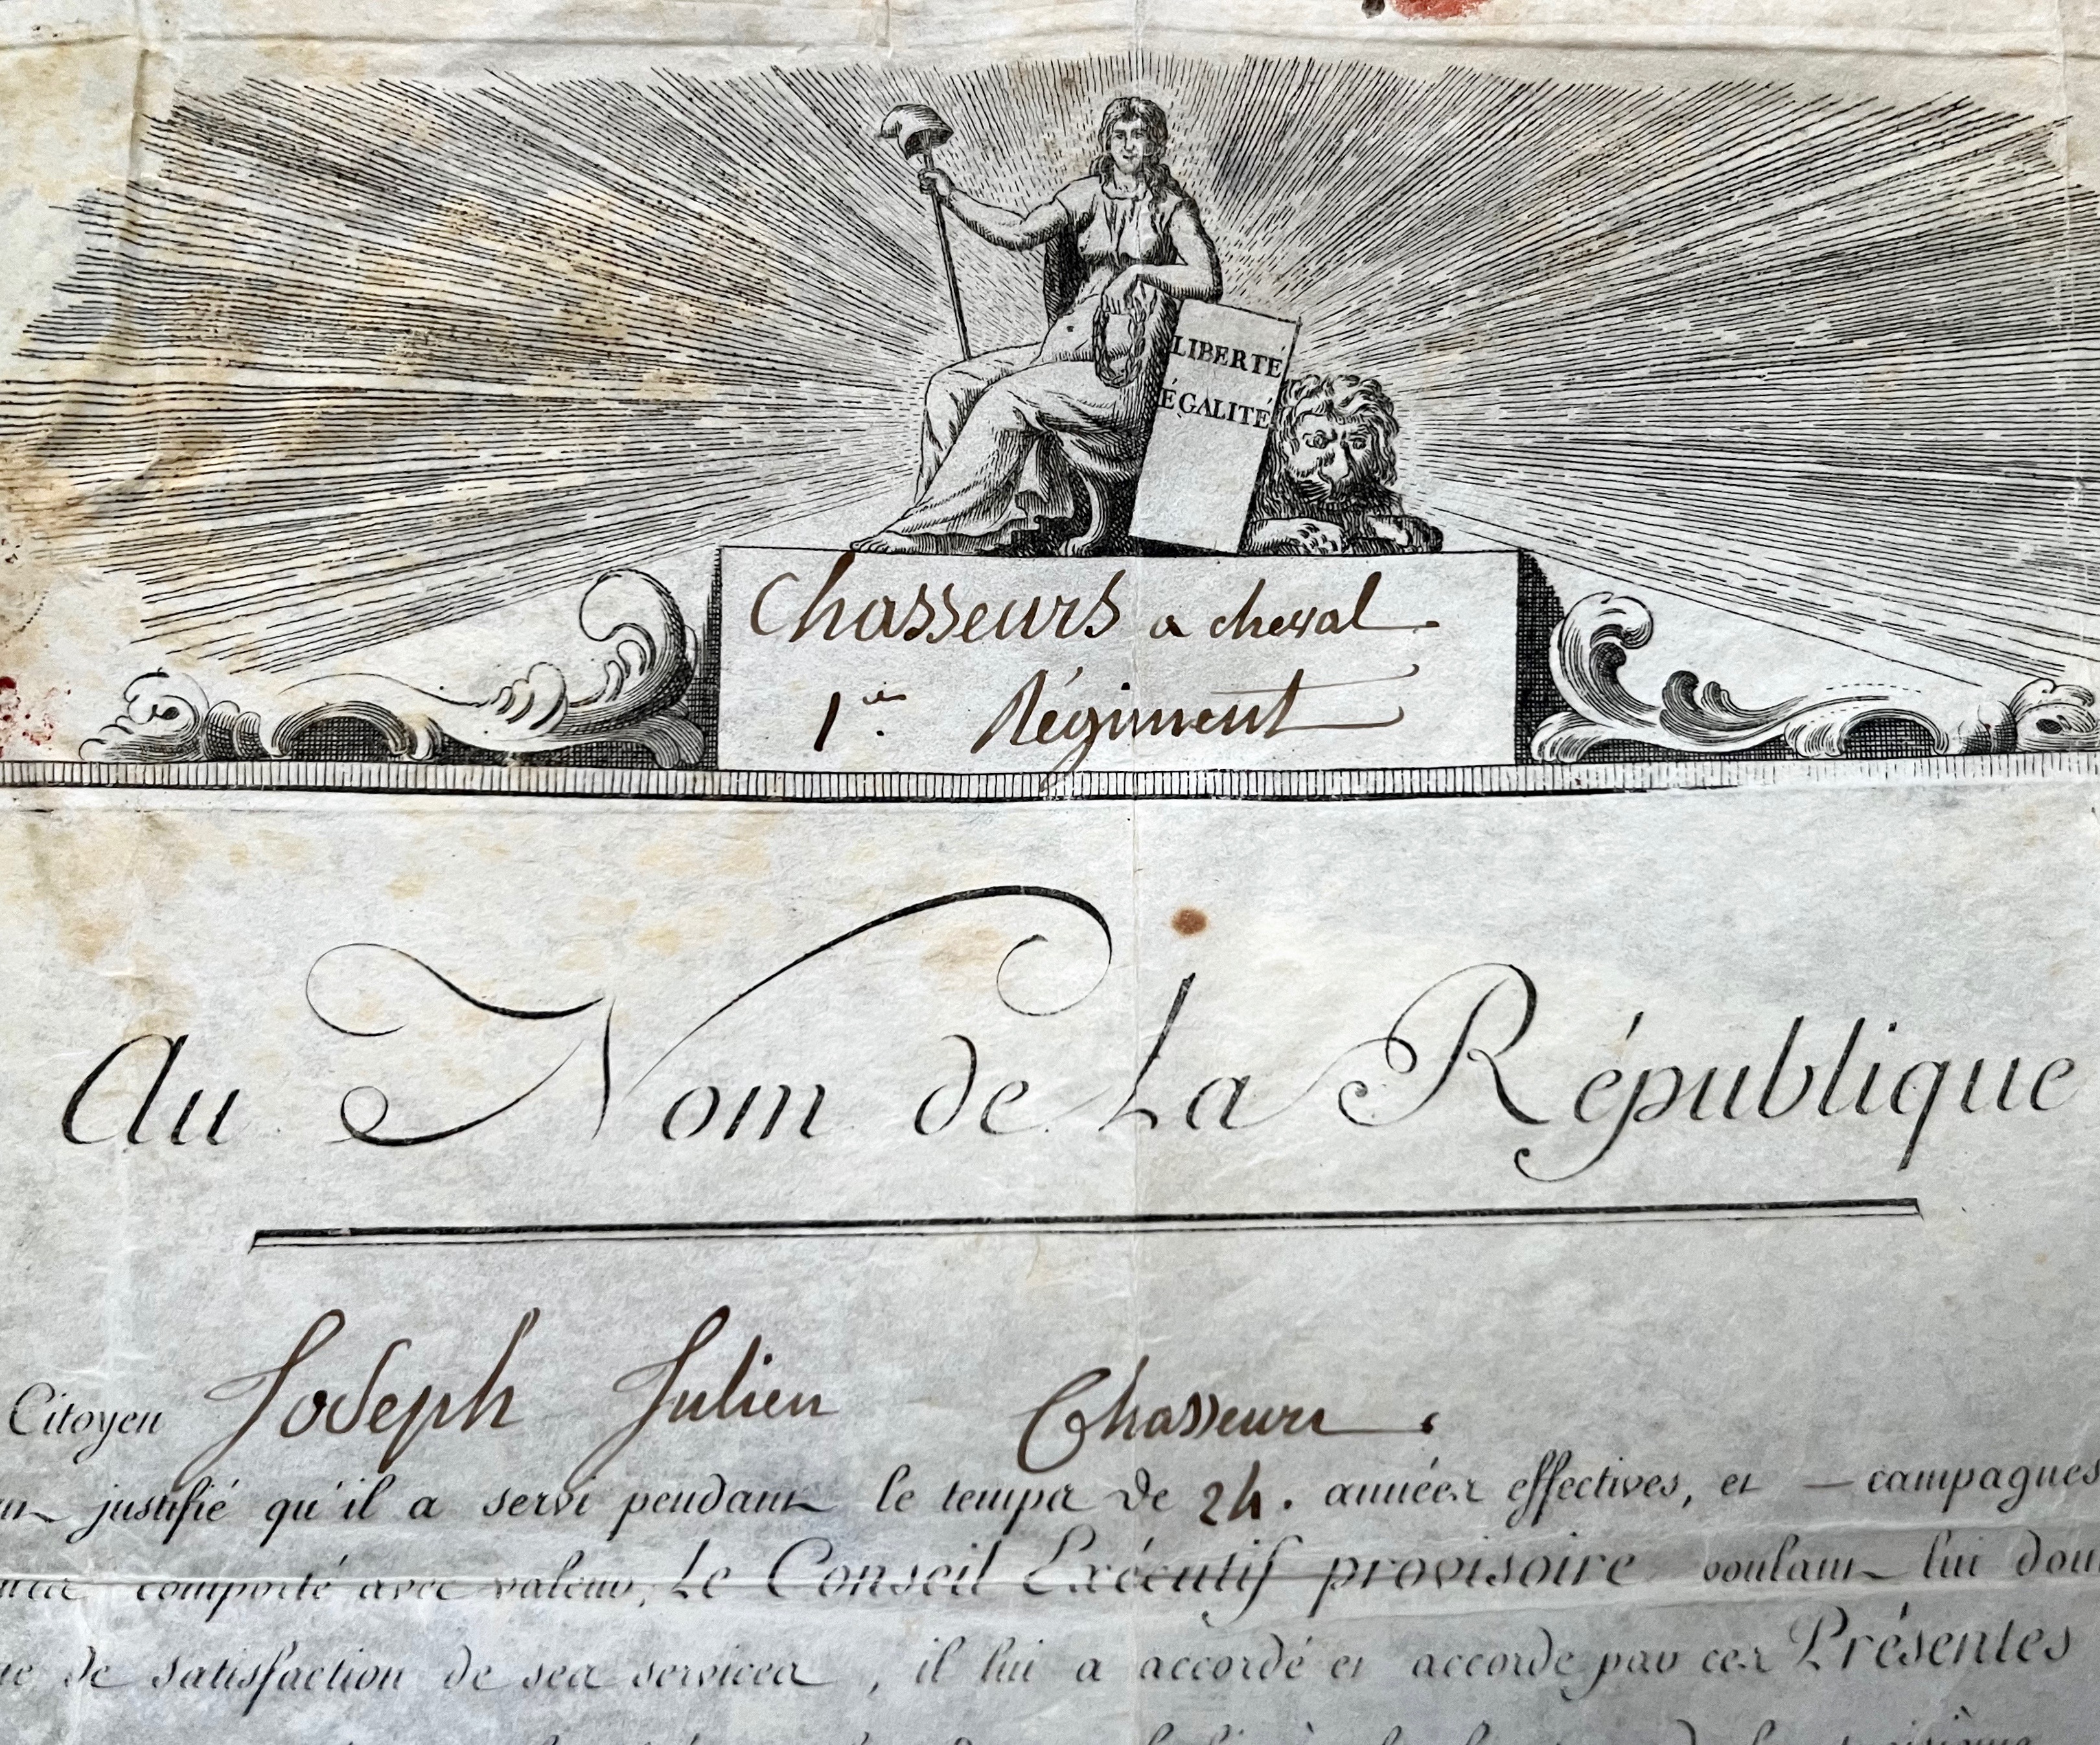 LIBERTÉ
ÉGALITÉ
Chasseurs a cheval.
1er Régiment
Au Nom de La République
Citoyen Joseph Julien Chasseur.
justifié qu'il a servi pendant le temps de 24. années effectives, et — campagnes
comporté avec valeur, Le Conseil Exécutif provisoire voulant lui
de satisfaction de ses services, il lui a accordé et accorde par ces Présentes